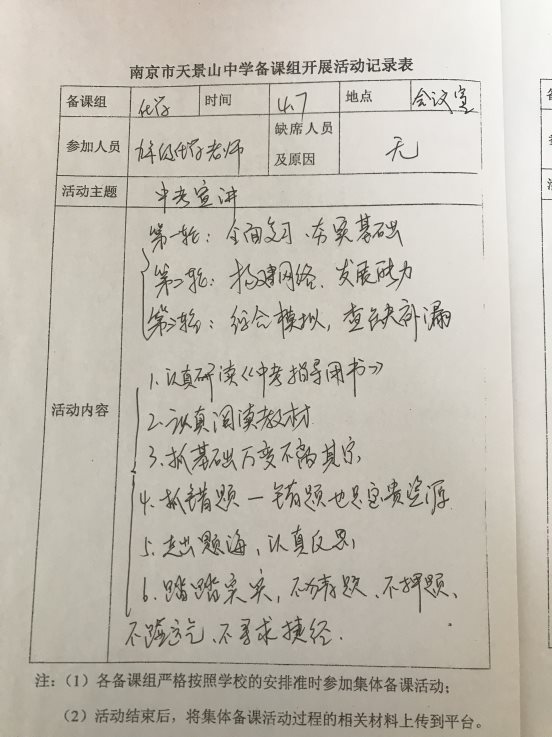 南京市天景山中学备课组开展活动记录表
备课组 化学 时间 4.7 地点 会议室
参加人员 九年级化学老师 缺席人员及原因 无
活动主题 中考宣讲
活动内容
第一轮：全面复习、夯实基础
第二轮：构建网络、发展能力
第三轮：综合模拟，查缺补漏
1.认真研读《中考指导用书》
2.认真阅读教材
3.抓基础万变不离其宗
4.抓错题—错题也是宝贵资源
5.走出题海、认真反思
6.踏踏实实，不猜题、不押题、
不碰运气、不寻求捷径.
注：（1）各备课组严格按照学校的安排准时参加集体备课活动；
（2）活动结束后，将集体备课活动过程的相关材料上传到平台。